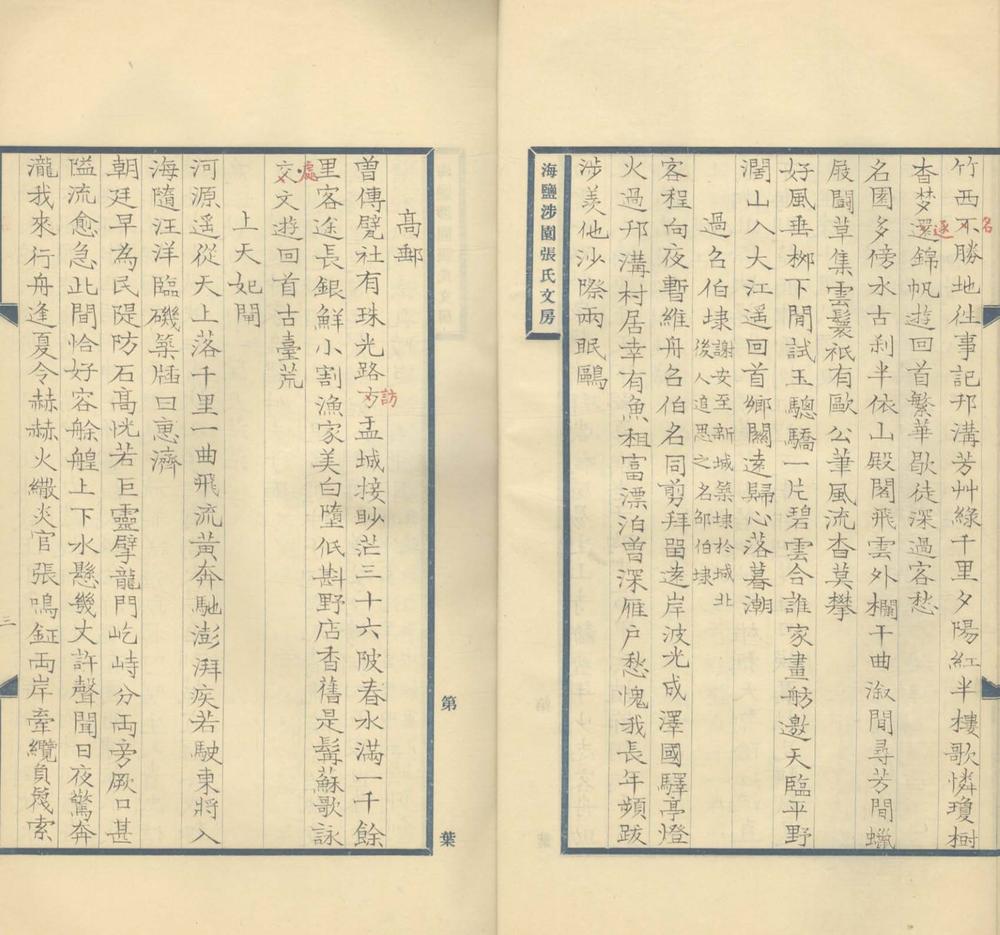 竹西不勝地往事記邗溝芳艸綠千里夕陽紅半樓歌憐瓊樹
名
杳梦還錦帆遊回首繁華歇徒深過客愁
逐
名園多傍水古刹半依山殿閣飛雲外欄干曲溆間尋芳間蠟
屐鬪草集雲鬟祇有歐公筆風流杳莫攀
好風垂栁下閒試玉驄驕一片碧雲合誰家畫舫邀天臨平野
濶山入大江遥回首鄉關遠歸心落暮潮
過召伯埭
謝安至新城築埭於城北
後人追思之名邵伯埭
客程向夜暫維舟召伯名同剪拜畱遠岸波光成澤國驛亭燈
火過邗溝村居幸有魚租富漂泊曾深雁户愁愧我長年頻跋
涉羨他沙際兩眠鷗
海鹽涉園張氏文房
第 葉
高郵
曾傳甓社有珠光路方盂城接眇茫三十六陂春水滿一千餘
訪
里客途長銀鮮小割漁家美白墮低斟野店香舊是髯蘇歌詠
處
交文遊回首古臺荒
上天妃閘
河源遥從天上落千里一曲飛流黃奔馳澎湃疾若駛東將入
海隨汪洋臨磯築牐曰惠濟
朝廷早為民隄防石高恍若巨靈擘龍門屹峙分兩旁厥口甚
隘流愈急此間恰好容艅艎上下水懸幾丈許聲聞日夜驚奔
瀧我來行舟逢夏令赫赫火繖炎官張鳴鉦兩岸牽纜負篾索
三